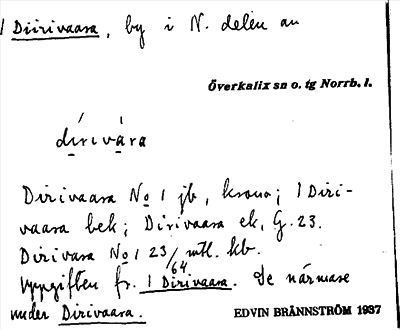 1 Diirivaara, by i N. delen av
Överkalix sn o. tg Norrb. l.
dírivàra
Dirivaara No 1 jb, krono; 1 Diri-
vaara bek; Dirivaara ek, G. 23.
Dirivara No 1 23/64. mtl. kb.
Uppgiften fr. 1 Dirivaara. Se närmare
under Dirivaara.
EDVIN BRÄNNSTRÖM 1937